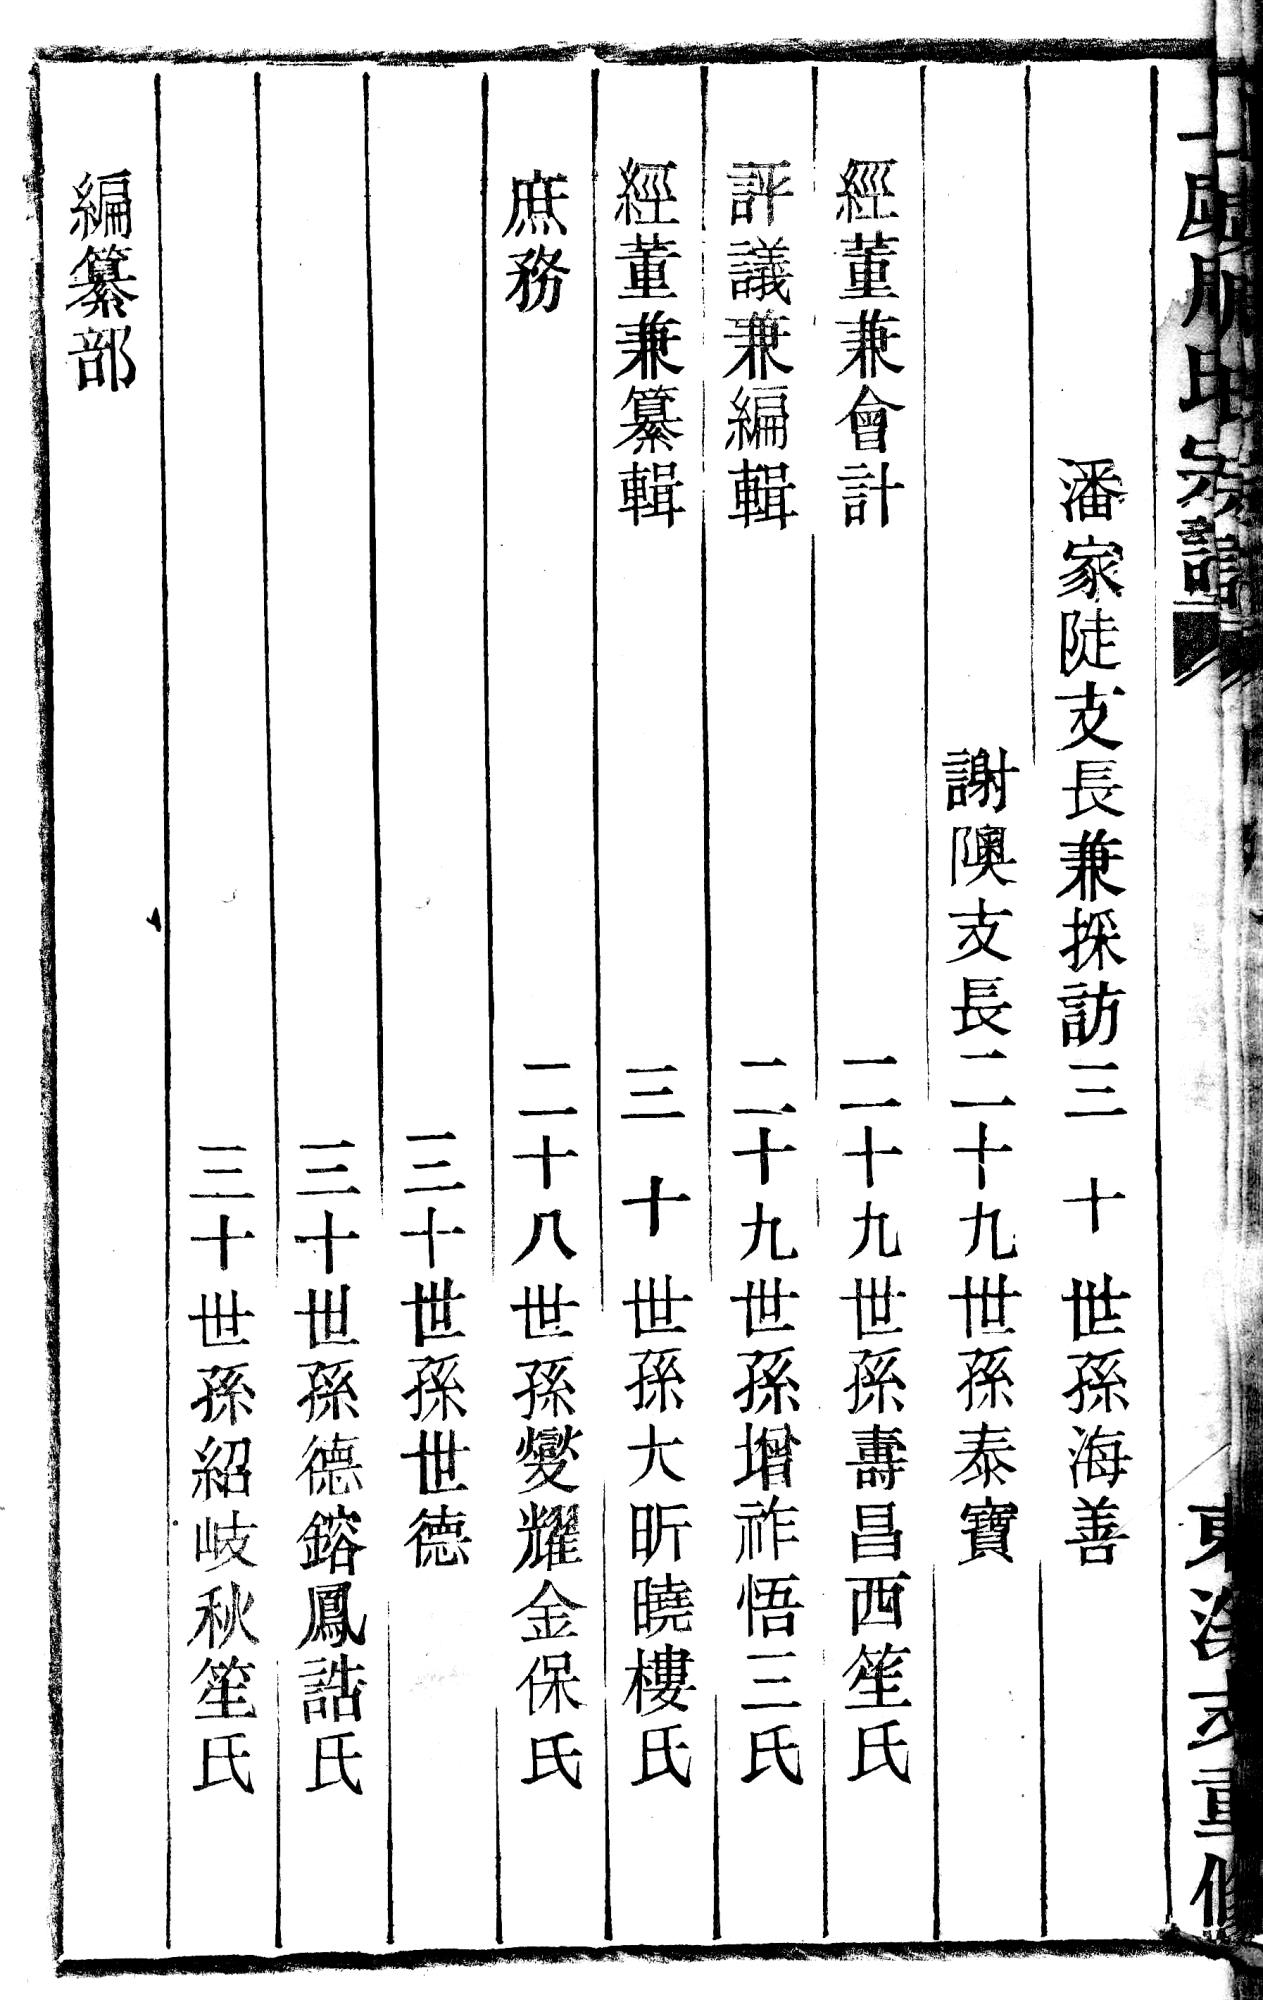 潘家陡支長兼採訪三十世孫海善
謝隩支長二十九世孫泰寶
經董兼會計 二十九世孫壽昌西笙氏
評議兼編輯 二十九世孫增祚悟三氏
經董兼纂輯 三十世孫大昕曉樓氏
庶務 二十八世孫燮耀金保氏
三十世孫世德
三十世孫德鎔鳳誥氏
三十世孫紹岐秋笙氏
編纂部